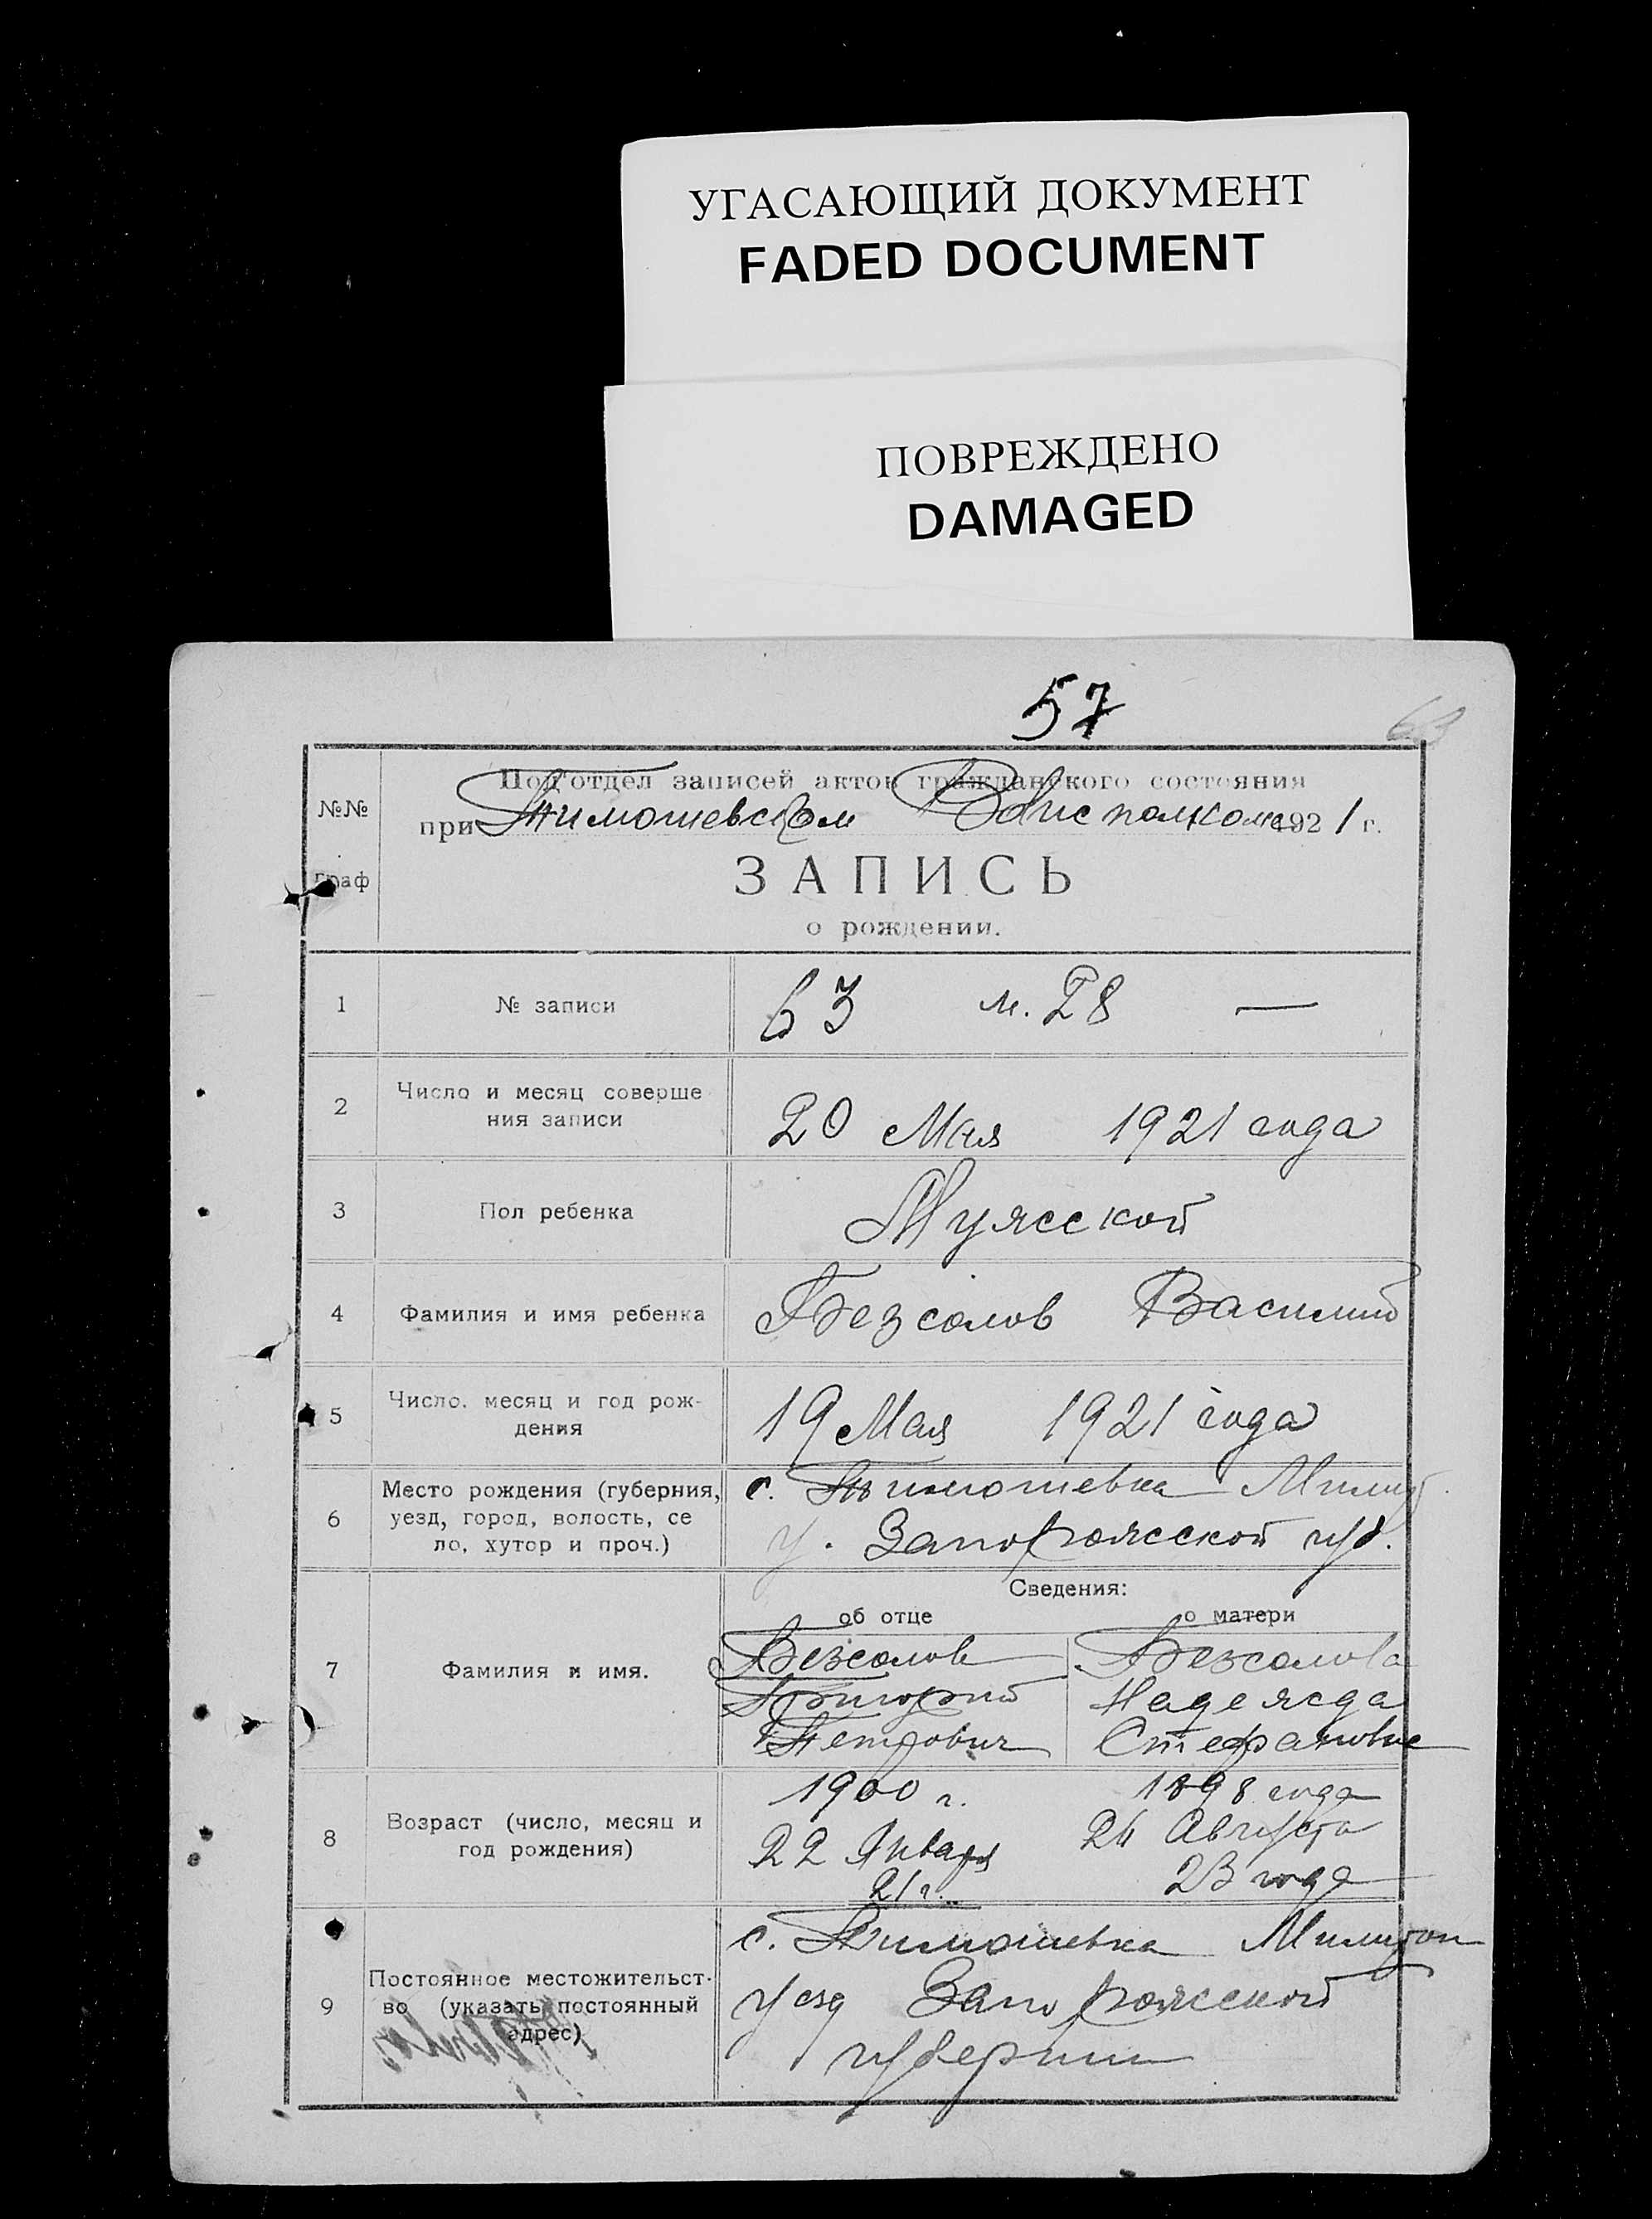 УГАСАЮЩИЙ ДОКУМЕНТ
FADED DOCUMENT
ПОВРЕЖДЕНО
DAMAGED
57
63
№№
граф
Под'отдел записей актов гражданского состояния
при Тимошевском Волисполкоме 1921 г.
ЗАПИСЬ
о рождении.
1 № записи 63 м. 28 —
2 Число и месяц соверше
ния записи 20 Мая 1921 года
3 Пол ребенка Мужской
4 Фамилия и имя ребенка Безсалов Василий
5 Число, месяц и год рож-
дения 19 Мая 1921 года
6 Место рождения (губерния, с. Тимошевка Милит.
уезд, город, волость, се у. Запорожской губ.
ло, хутор и проч.)
Сведения:
об отце о матери
7 Фамилия и имя. Безсалов Безсалова
Григорий Надежда
Петрович Стефановна
8 Возраст (число, месяц и
год рождения) 1900 г. 1898 года
22 Января 24 Августа
21 г. 23 года
9 Постоянное местожительст-
во (указать постоянный
адрес) с. Тимошевка Милитоп
уезд Запорожской
губернии